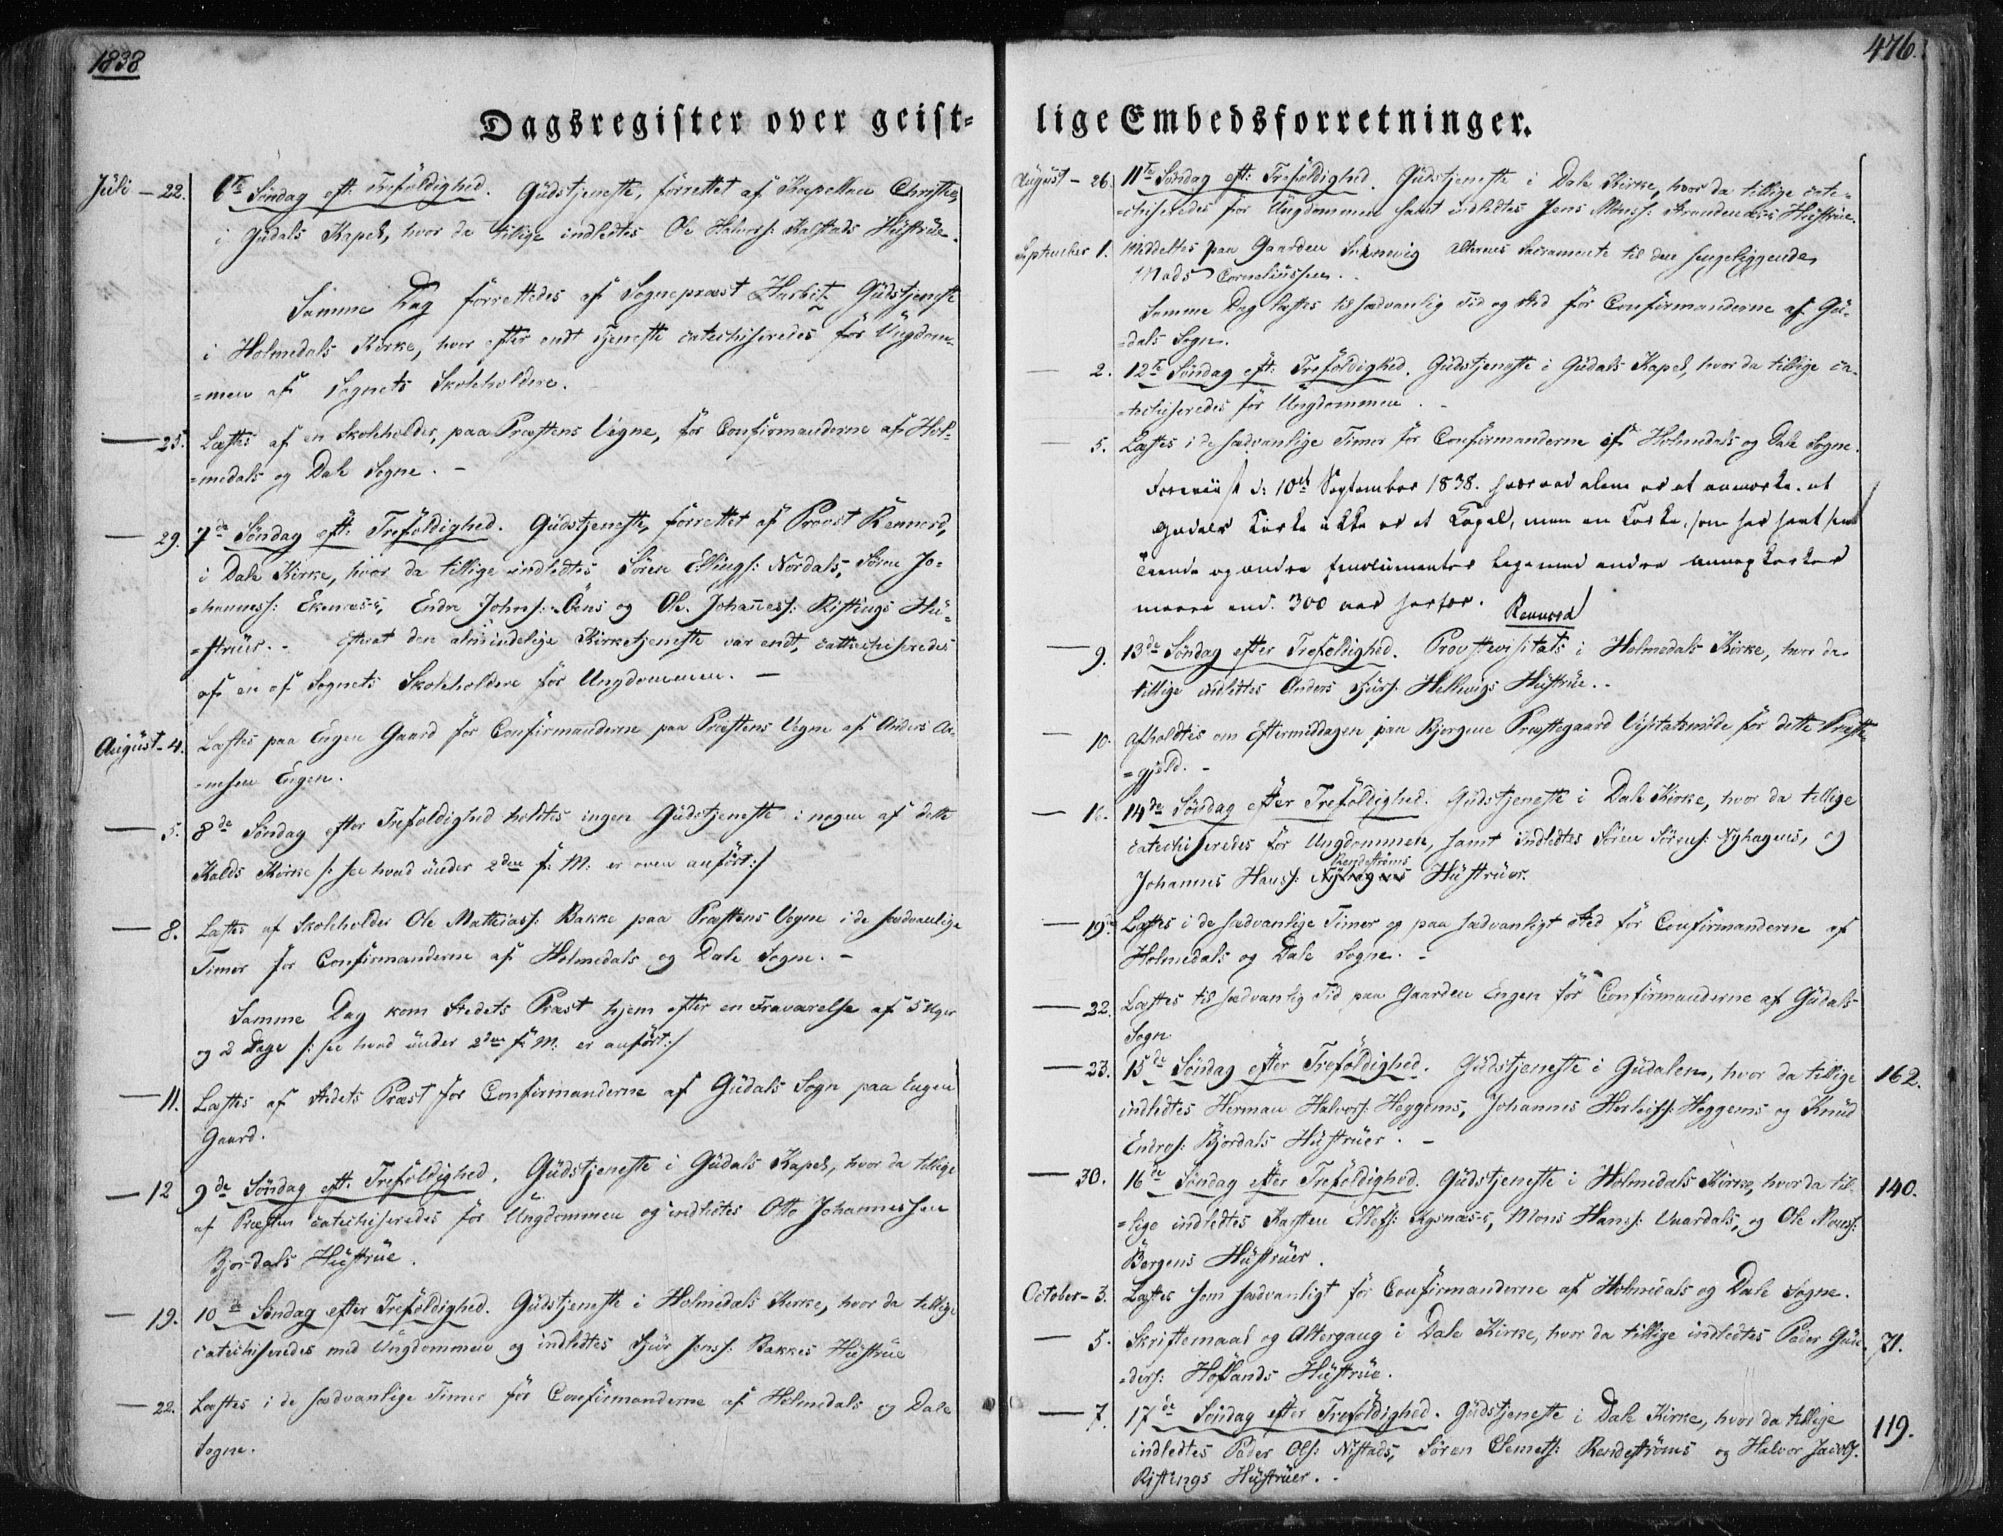 1838
Dagsregister over geist-
Juli - 22. 6te Søndag eft: Trefoldighed. Gudstjeneste, forrettet af Kapellan Christie,
i Gudals Kapel, hvor da tillige indledtes Ole Halvors: Kalstads Hustrüe.
Samme Dag forrettedes af Sognepræst Harbitz Gudstjeneste
i Holmedals Kirke, hvor efter endt Tjeneste catechiseredes for Ungdom-
=men af Sognets Skoleholdere.
— 25. Læstes af en Skoleholder, paa Præstens Vegne, for Confirmanderne af Hol-
=medals og Dale Sogne. -
— 29. 7de Søndag eft: Trefoldighed. Gudstjeneste, forrettet af Provst Rennord,
i Dale Kirke, hvor da tillige indledtes Sören Ellings: Nordals, Sören Jo-
=hanness: Ekenæss, Endre Johns: Öens og Ole Johanness: Ristings Hü-
=strüer. - Efterat den almindelige Kirketjeneste var endt, catechiseredes
af en af Sognets Skoleholdere for Ungdommen. -
August - 4. Læstes paa Engen Gaard for Confirmanderne paa Præstens Vegne af Anders Ar-
=nesen Engen.
— 5. 8de Søndag efter Trefoldighed holdtes ingen Gudstjeneste i nogen af dette
Kalds Kirker /: see hvad ünder 2den f: M: er oven anført :/
— 8. Læstes af Skoleholder Ole Mathiass: Bakke paa Præstens Vegne i de sædvanlige
Timer for Confirmanderne af Holmedals og Dale Sogne. -
Samme Dag kom Stedets Præst hjem efter en Fraværelse af 5 Uger
og 2 Dage /: see hvad ünder 2den f: M: er anført :/
— 11. Læstes af Stedets Præst for Confirmanderne af Gudals Sogn paa Engen
Gaard.
— 12 9de Søndag eft. Trefoldighed. Gudstjeneste i Gudals Kapel, hvor da tillige
af Præsten catechiseredes for Ungdommen og indledtes Otto Johannessen
Bjordals Hustrüe.
— 19. 10de Søndag efter Trefoldighed. Gudstjeneste i Holmedals Kirke, hvor da tillige
catechiseredes med Ungdommen og indledtes Sjur Jens: Bakkes Hustrüe
— 22. Læstes i de sædvanlige Timer for Confirmanderne af Holmedals og Dale
Sogne.
476.
lige Embedsforretninger.
August - 26. 11te Søndag eft: Trefoldighed. Gudstjeneste i Dale Kirke, hvor da tillige cate-
=chiseredes for Ungdommen samt indledtes Jens Monss: Strandenæss Hustrüe.
September 1. Meddeltes paa Gaarden Alterens Sacramente til den sengeliggende
Mads Corneliussen.
Samme Dag læstes til sædvanlig Tid og Sted for Confirmanderne af Gu-
=dals Sogn.
— 2. 12te Søndag eft: Trefoldighed. Gudstjeneste i Gudals Kapel, hvor da tillige ca-
=techiseredes for Ungdommen. -
— 5. Læstes i de sædvanlige Timer for Confirmanderne af Holmedals og Dale Sogne.
Foreviist d: 10de September 1838. hvorved alene er at anmærke, at
Gudals Kirke ikke er et Capel, men en Kirke, som har havt sin
Tiende og andre Emolumenter ligemed andre Annexkirker
meere end 300 aar herfor. Rennord
— 9. 13de Søndag efter Trefoldighed. Provstevisitats i Holmedals Kirke, hvor da
tillige indledtes Anders Sjurs: Hellevigs Hustrüe. -
— 10. Afholdtes om Eftermiddagen paa Bjergene Præstegaard Visitatsmøde for dette Præste-
=gjeld. -
— 16. 14de Søndag efter Trefoldighed. Gudstjeneste i Dale Kirke, hvor da tillige
catechiseredes for Ungdommen, samt indledtes Sören Sörens: Nyhagens, og
Rendeströms
Johannes Hanss: Nyhagens Hustrüer.
— 19. Læstes i de sædvanlige Timer og paa sædvanligt Sted for Confirmanderne af
Holmedals og Dale Sogne. -
— 22. Læstes til sædvanlig Tid paa Gaarden Engen for Confirmanderne af Gudals
Sogn
— 23. 15de Søndag efter Trefoldighed. Gudstjeneste i Gudalen, hvor da tillige 162.
indledtes Herman Halvors: Heggems, Johannes Herleifs: Heggems og Knud
Endres: Bjordals Hustrüer. -
— 30. 16de Søndag efter Trefoldighed. Gudstjeneste i Holmedals Kirke, hvor da til- 140.
=lige indledtes Karsten Ellefs: Rysnæss, Mons Hanss: Vaardals, og Ole Monss:
Börgens Hustrüer.
October - 3. Læstes som sædvanligt for Confirmanderne af Holmedals og Dale Sogne.
— 5. Skriftemaal og Altergang i Dale Kirke, hvor da tillige indledtes Peder Gun- 71.
=ders: Höflands Hustrüe.
— 7. 17de Søndag efter Trefoldighed. Gudstjeneste i Dale Kirke, hvor da tillige 119.
indledtes Peder Ols: Nistads, Sören Clemets: Rendeströms og Halvor Jacobs:
Ristings Hustrüer. -